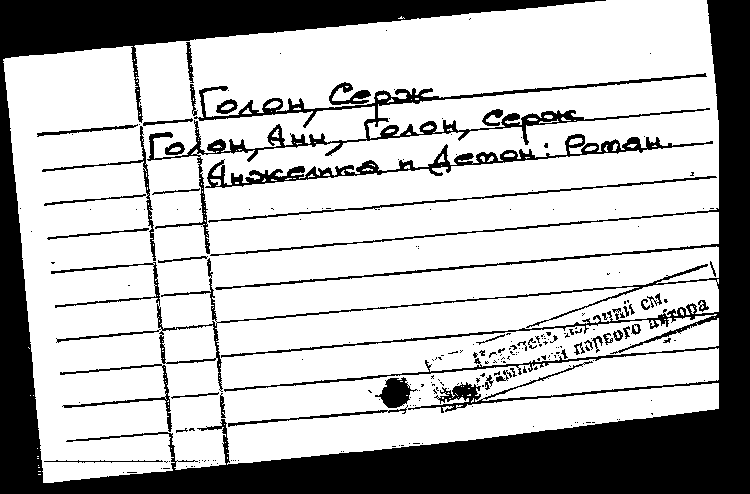 Голон, Серж
Голон, Анн, Голон, Серж
Анжелика и Демон: Роман.
Перечень изданий см.
фамилией первого автора